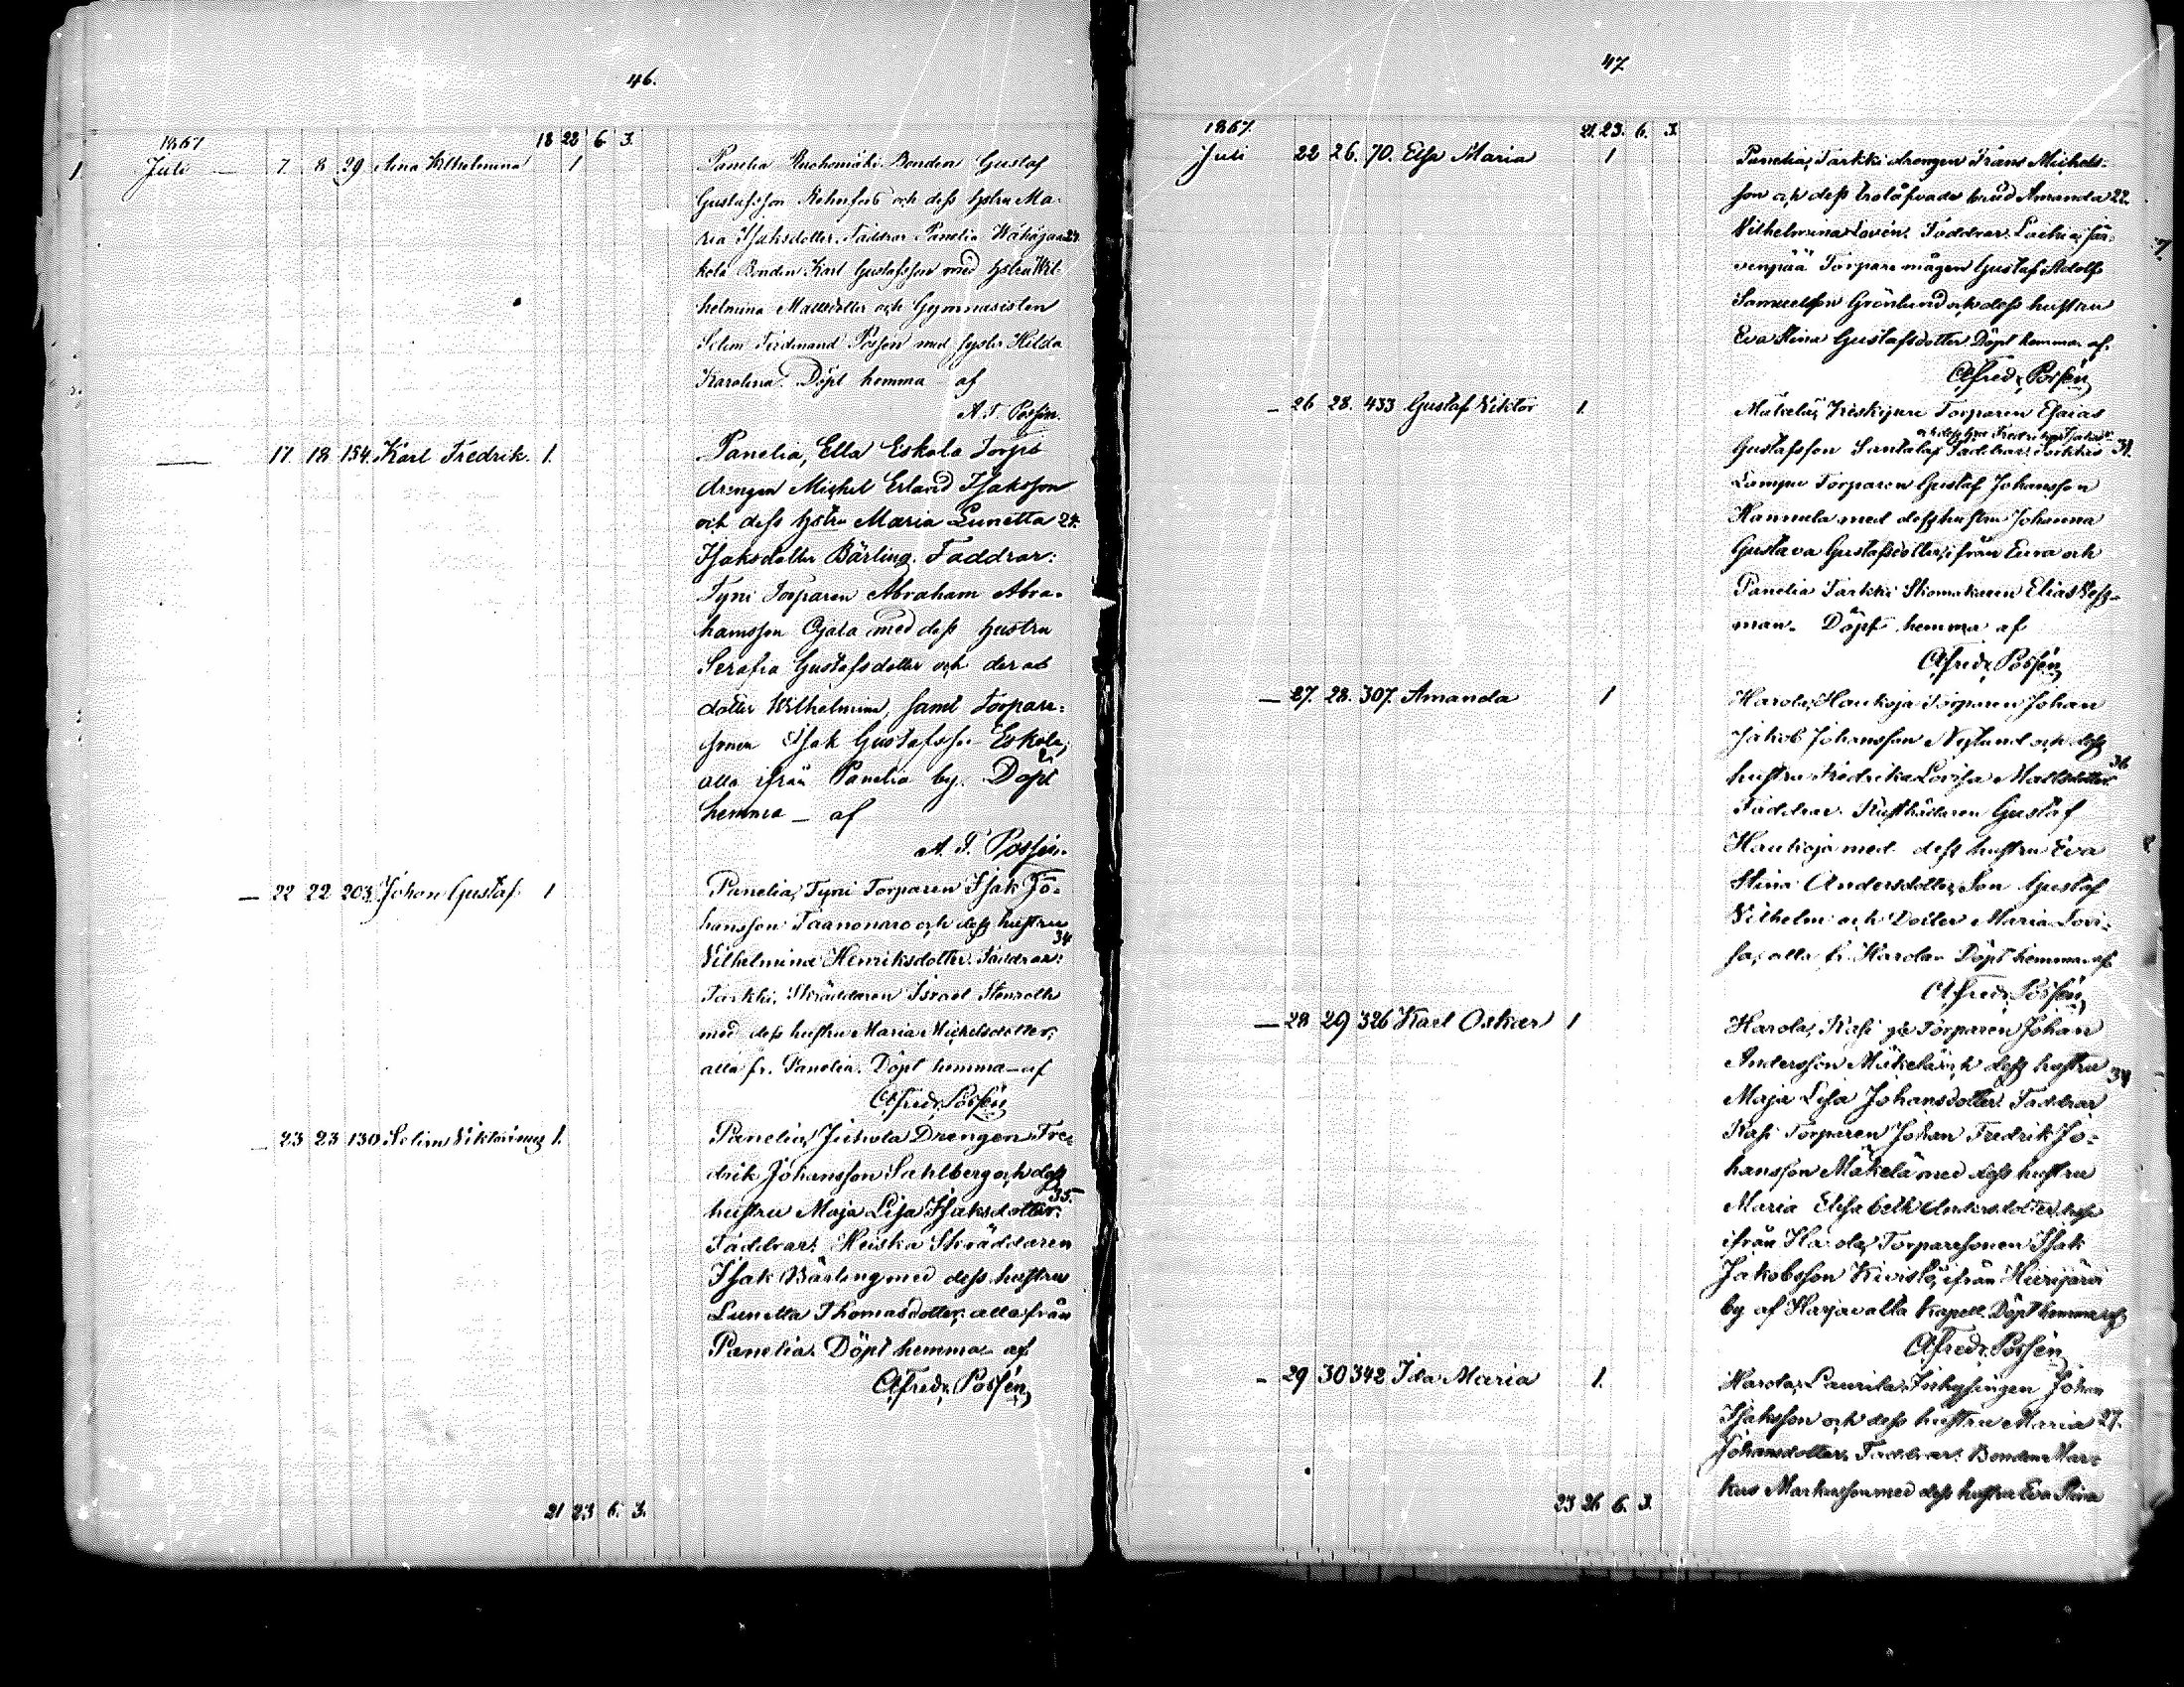 46.
1867
18 22 6. 3.
Juli — 7. 8 29 Aina Wilhelmina 1
Panelia Ruohomäki Bonden Gustaf
Gustafsson och dess hstru Ma-
ria Isaksdotter. Faddrar: Panelia 23.
kola Bonden Karl Gustafsson med hstru Wil-
helmina Mattsdotter och Gymnasisten
Selim Ferdinand Possen med syster Hilda
Karolina. Döpt hemma af
A. F. Possén.
— 17. 18 154. Karl Fredrik. 1.
Panelia, Ella Eskola Torps
drengen Michel Erland Isaksson
och dess hstru Maria Lunetta 24.
Isaksdotter Bärling. Faddrar:
Tyni Torparen Abraham Abra-
hamsson Ojala med dess hustru
Serafia Gustafsdotter och deras
dotter Wilhelmina, samt Torpare-
sonen Isak Gustafsson Eskola,
alla ifrån Panelia by. Döpt
hemma — af
A. F. Possén.
— 22 22 203. Johan Gustaf 1
Panelia, Tyni Torparen Isak Jo-
hansson Taanonaro och dess hustru
34
Vilhelmina Henriksdotter. Faddrar:
Tarkki, Skräddaren Israel Stenroth
med dess hustru Maria Michelsdotter;
alla fr. Panelia. Döpt hemma — af
Alfred Possén
— 23 23 130 Selim Viktorinus 1.
Panelia, Juhola Drengen Fre-
drik Johansson Sahlberg och dess
35.
hustru Maja Lisa Isaksdotter.
Faddrar: Heiska Skräddaren
Isak Bärling med dess hustru
Lunetta Thomasdotter; alla från
Panelia. Döpt hemma af
Alfred Possén
21 23 6. 3.
47.
1867.
21. 23. 6. 3.
Juli 22 26. 70. Elsa Maria 1
Panelia, Tarkki drengen Frans Michels-
son och dess trolåfvade brud Amanda 22.
Vilhelmina Lovén. Faddrar: Jär-
venpää Torpare mågen Gustaf Adolf
Samuelsson Grönlund och dess hustru
Eva Stina Gustafsdotter. Döpt hemma af.
Alfred Possén
— 26 28. 433 Gustaf Viktor 1.
Mäkelä, Torparen Esaias
och dess hru Fredrika
Gustafsson Santala; Faddrar: 31.
Torparen Gustaf Johansson
Hannula med dess hustru Johanna
Gustava Gustafsdotter, ifrån Eura och
Panelia Tarkki Skomakaren Elias
man. Döpt hemma af
Alfred Possén
— 27. 28. 307. Amanda 1
Harola, Haukoja Torparen Johan
Jakob Johansson Nylund och dess
36
hustru Fredrika Lovisa Mattsdotter.
Faddrar. Rusthållaren Gustaf
Haukoja med dess hustru Eva
Stina Andersdotter, Son Gustaf
Vilhelm och Dotter Maria Lovi-
sa; alla fr. Harola. Döpt hemma af
Alfred Possén
— 28 29 326 Karl Oskar 1
Harola, Kasi Torparen Johan
Andersson Mäkelä och dess hustru 34
Maja Lisa Johansdotter. Faddrar
Kasi Torparen Johan Fredrik Jo-
hansson Mäkelä med dess hustru
Maria Elisabeth Andersdotter,
ifrån Harola, Torparesonen Isak
Jakobsson Kivistö, ifrån Hiirijärvi
by af Harjavalta Kapell. Döpt hemma af
Alfred Possén
— 29 30 342 Ida Maria 1.
Harola, Laurila, Inhysingen Johan
Isaksson och dess hustru Maria 27.
Johansdotter. Faddrar: Bonden Mar-
kus Markusson med dess hustru Eva Stina
23 26 6. 3.